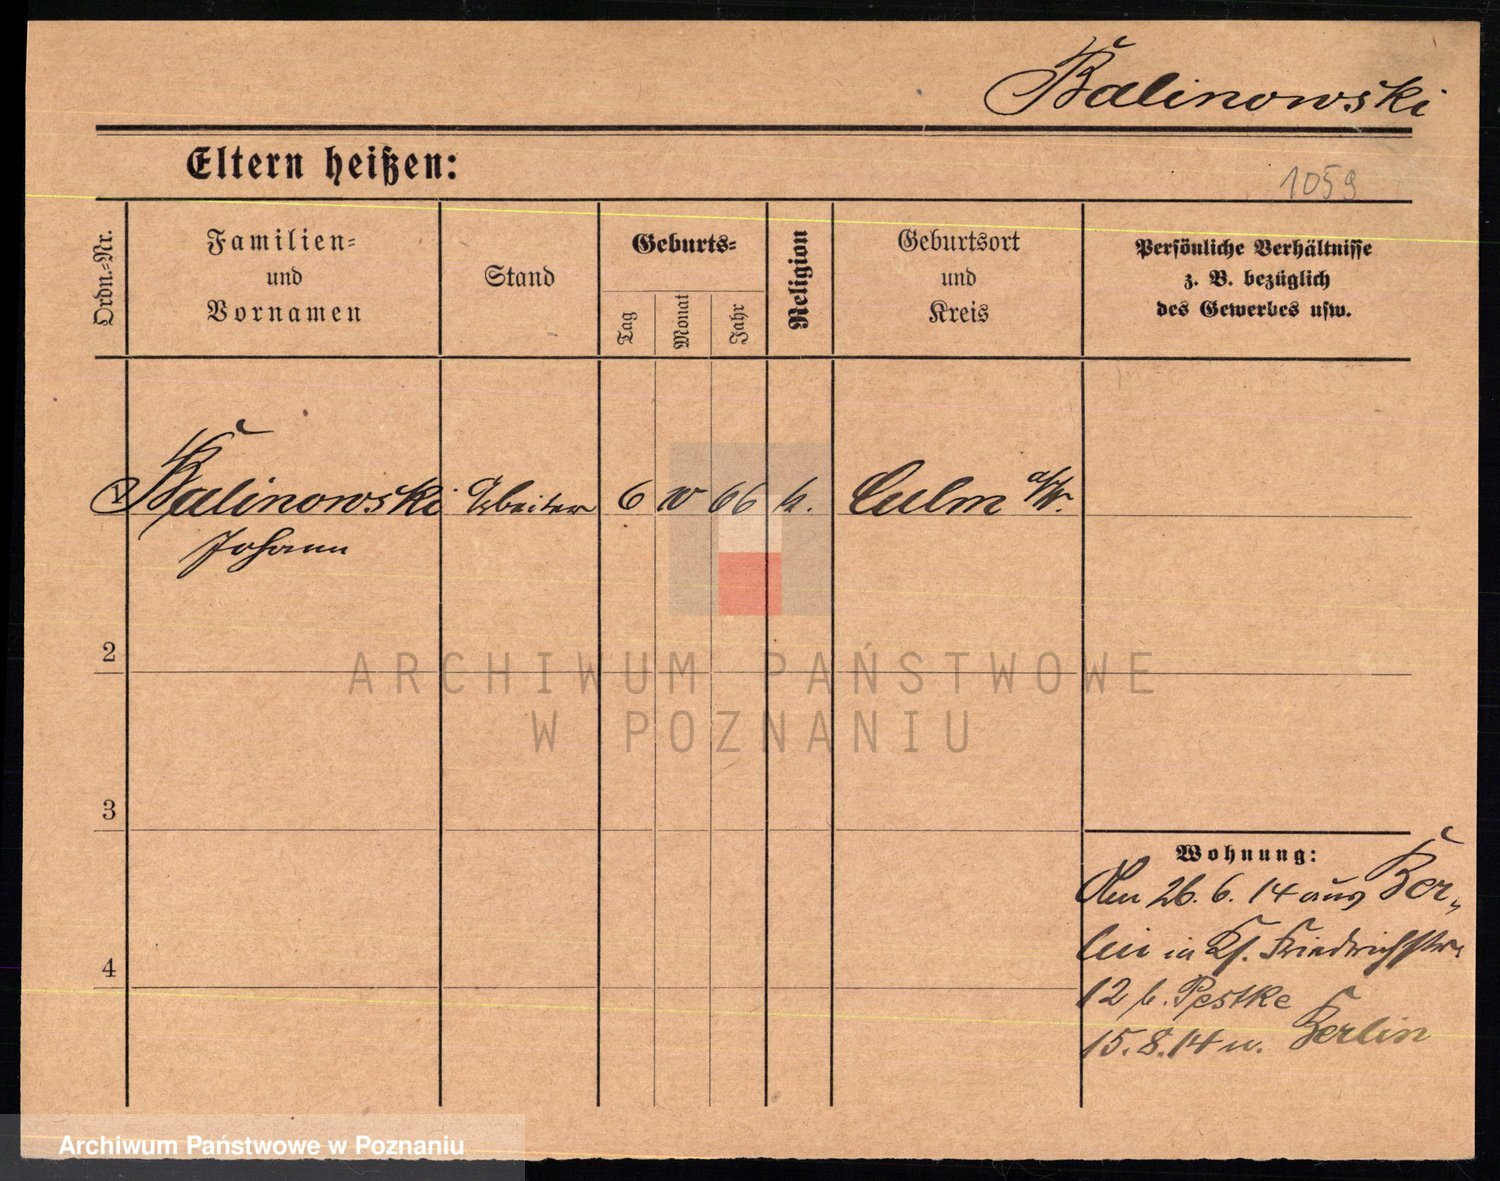 Kalinowski
Eltern heißen:
1059
Ordn.=Nr.
Familien=
und
Vornamen
Stand
Geburts=
Tag
Monat
Jahr
Religion
Geburtsort
und
Kreis
Persönliche Verhältnisse
z. B. bezüglich
des Gewerbes usw.
1 Kalinowski Arbeiter 6 10 66 k. Culm a/W.
Johann
2
3
4
Wohnung:
Am 26. 6. 14 aus Ber-
lin in Kf. Friedrichstr.
12 b. Pestke
15. 8. 14 n. Berlin
ARCHIWUM PAŃSTWOWE
W POZNANIU
Archiwum Państwowe w Poznaniu